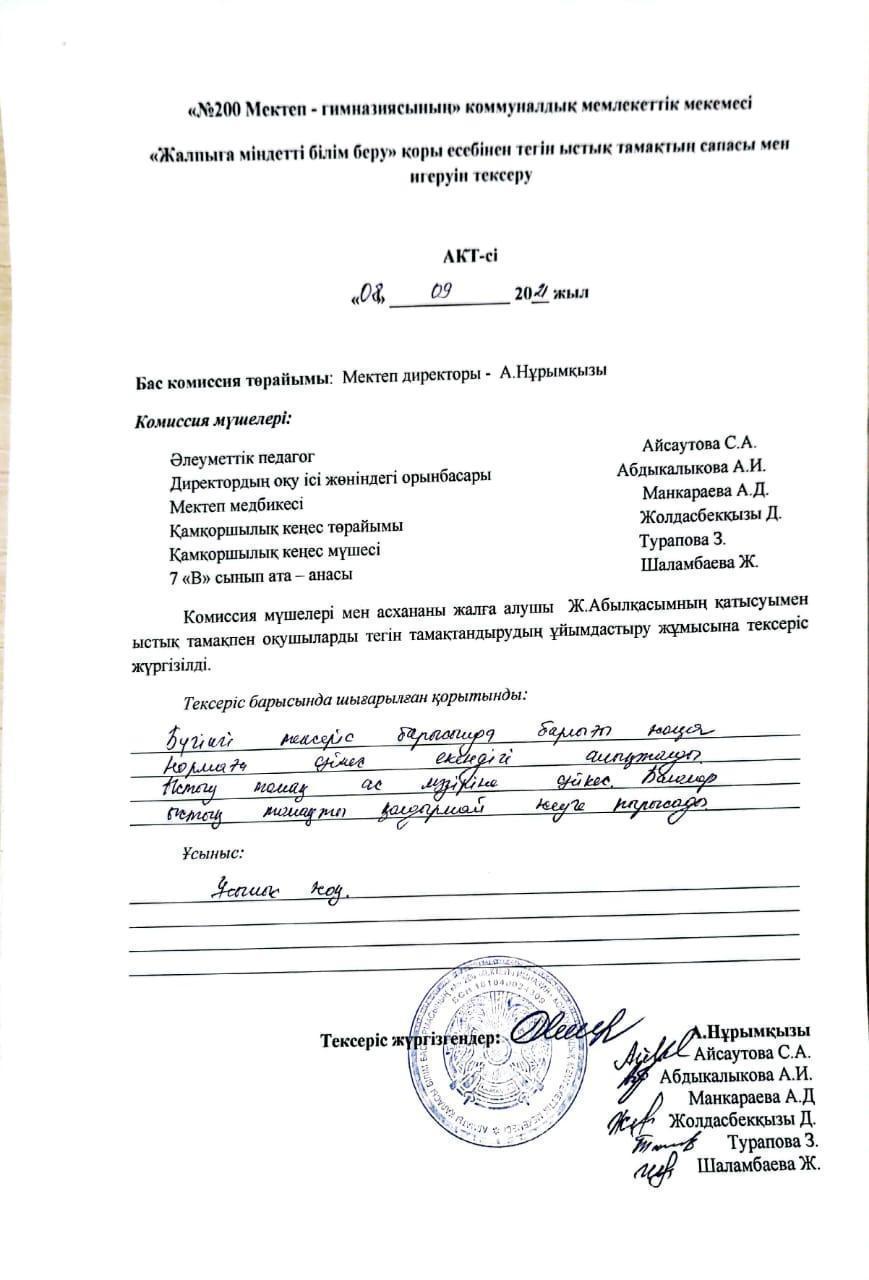 «№200 Мектеп - гимназиясының» коммуналдық мемлекеттік мекемесі
«Жалпыға міндетті білім беру» қоры есебінен тегін ыстық тамақтың сапасы мен
игеруін тексеру
АКТ-сі
«08» 09 2021 жыл
Бас комиссия төрайымы: Мектеп директоры - А.Нұрымқызы
Комиссия мүшелері:
Әлеуметтік педагог Айсаутова С.А.
Директордың оқу ісі жөніндегі орынбасары Абдыкалыкова А.И.
Мектеп медбикесі Манкараева А.Д.
Қамқоршылық кеңес төрайымы Жолдасбекқызы Д.
Қамқоршылық кеңес мүшесі Турапова З.
7 «В» сынып ата – анасы Шаламбаева Ж.
Комиссия мүшелері мен асхананы жалға алушы Ж.Абылқасымның қатысуымен
ыстық тамақпен оқушыларды тегін тамақтандырудың ұйымдастыру жұмысына тексеріс
жүргізілді.
Тексеріс барысында шығарылған қорытынды:
Бүгінгі тексеріс барысында барлығы
нормаға сәйкес екендігі анықталды.
Ыстық тамақ ас мәзіріне сәйкес. Балалар
ыстық тамақты қалдырмай жеуге тырысады.
Ұсыныс:
Ұсыныс жоқ.
Тексеріс жүргізгендер: А.Нұрымқызы
Айсаутова С.А.
Абдыкалыкова А.И.
Манкараева А.Д
Жолдасбекқызы Д.
Турапова З.
Шаламбаева Ж.